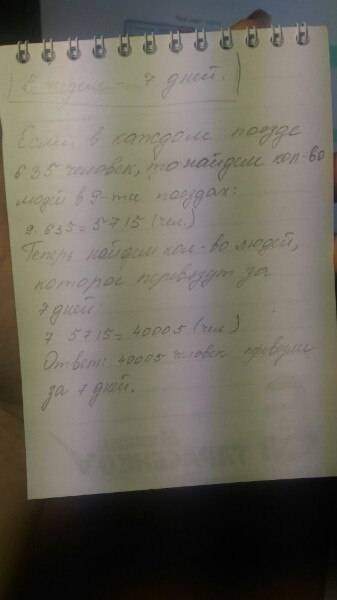 В неделе - 7 дней.
Если в каждом поезде
635 человек, то найдём кол-во
людей в 9-ти поездах:
9·635=5715 (чел.)
Теперь найдём кол-во людей,
которое перевезут за
7 дней
7 5715=40005 (чел.)
Ответ: 40005 человек
за 7 дней.